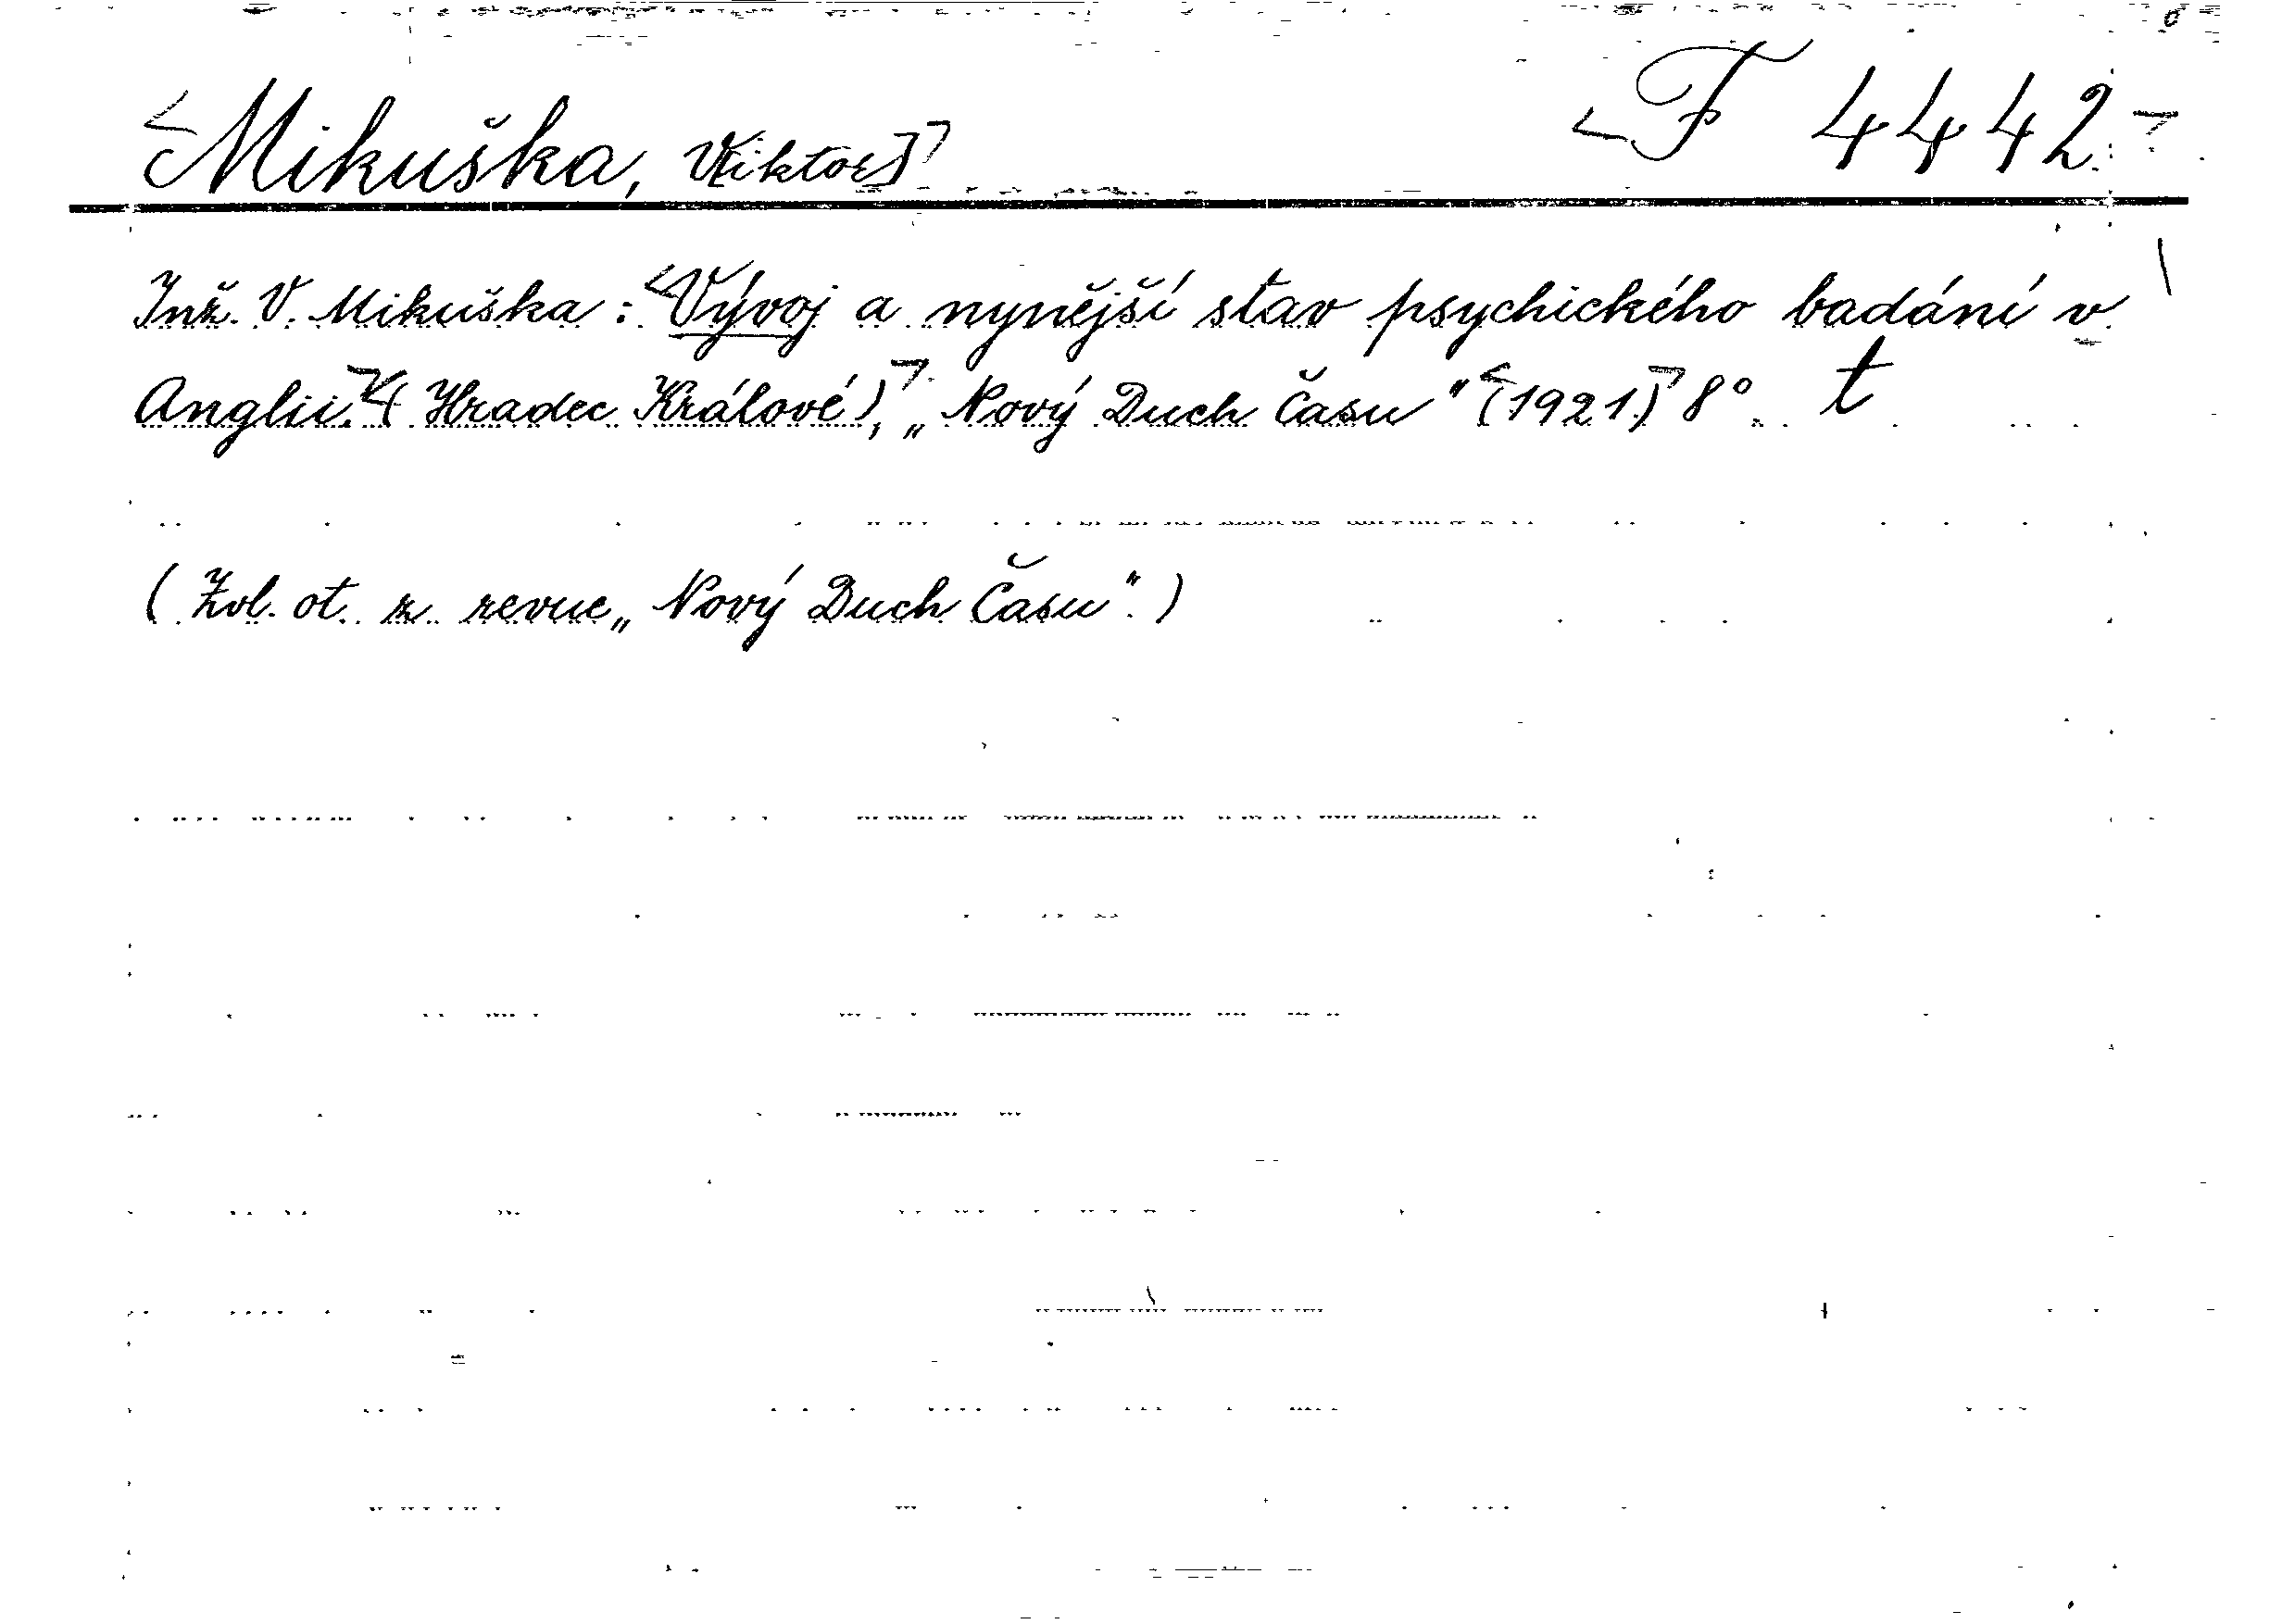 Mikuška, V[iktor] F 4442.
Inž. V. Mikuška: Vývoj a nynější stav psychického badání v
Anglii. (Hradec Králové), „Nový Duch Času" (1921.) 8° t
(Zvl. ot. z revue „Nový Duch Času".)